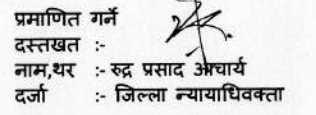 प्रमाणित गर्ने
दस्तखत :-
नाम,थर :- रुद्र प्रसाद आचार्य
दर्जा :- जिल्ला न्यायाधिवक्ता